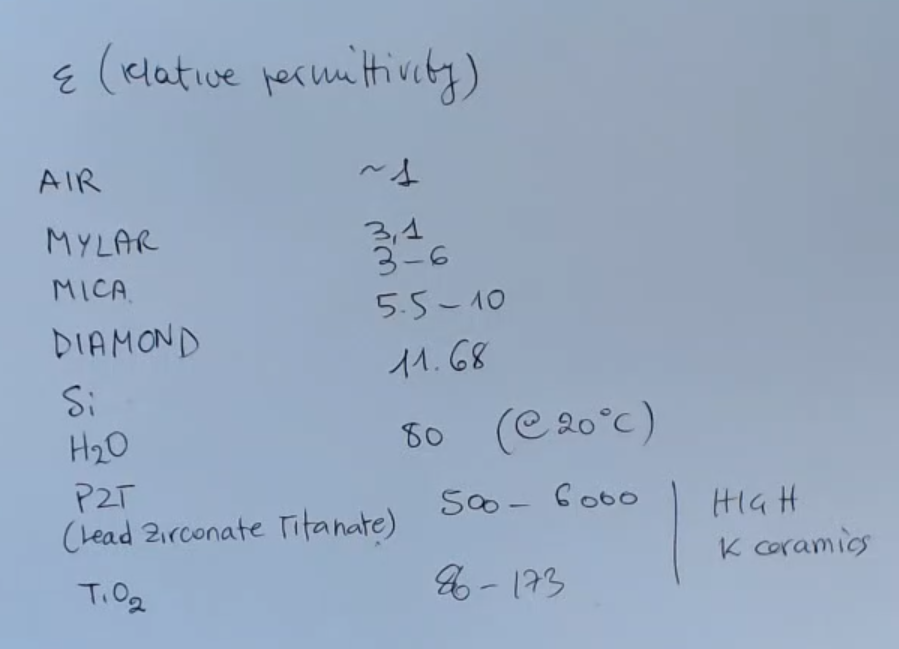 ε (relative permittivity)
AIR ~1
MYLAR 3,1
MICA 3-6
DIAMOND 5.5-10
Si 11.68
H2O 80 (@20°C)
PZT 500-6000 HIGH
(Lead Zirconate Titanate) K ceramics
TiO2 86-173